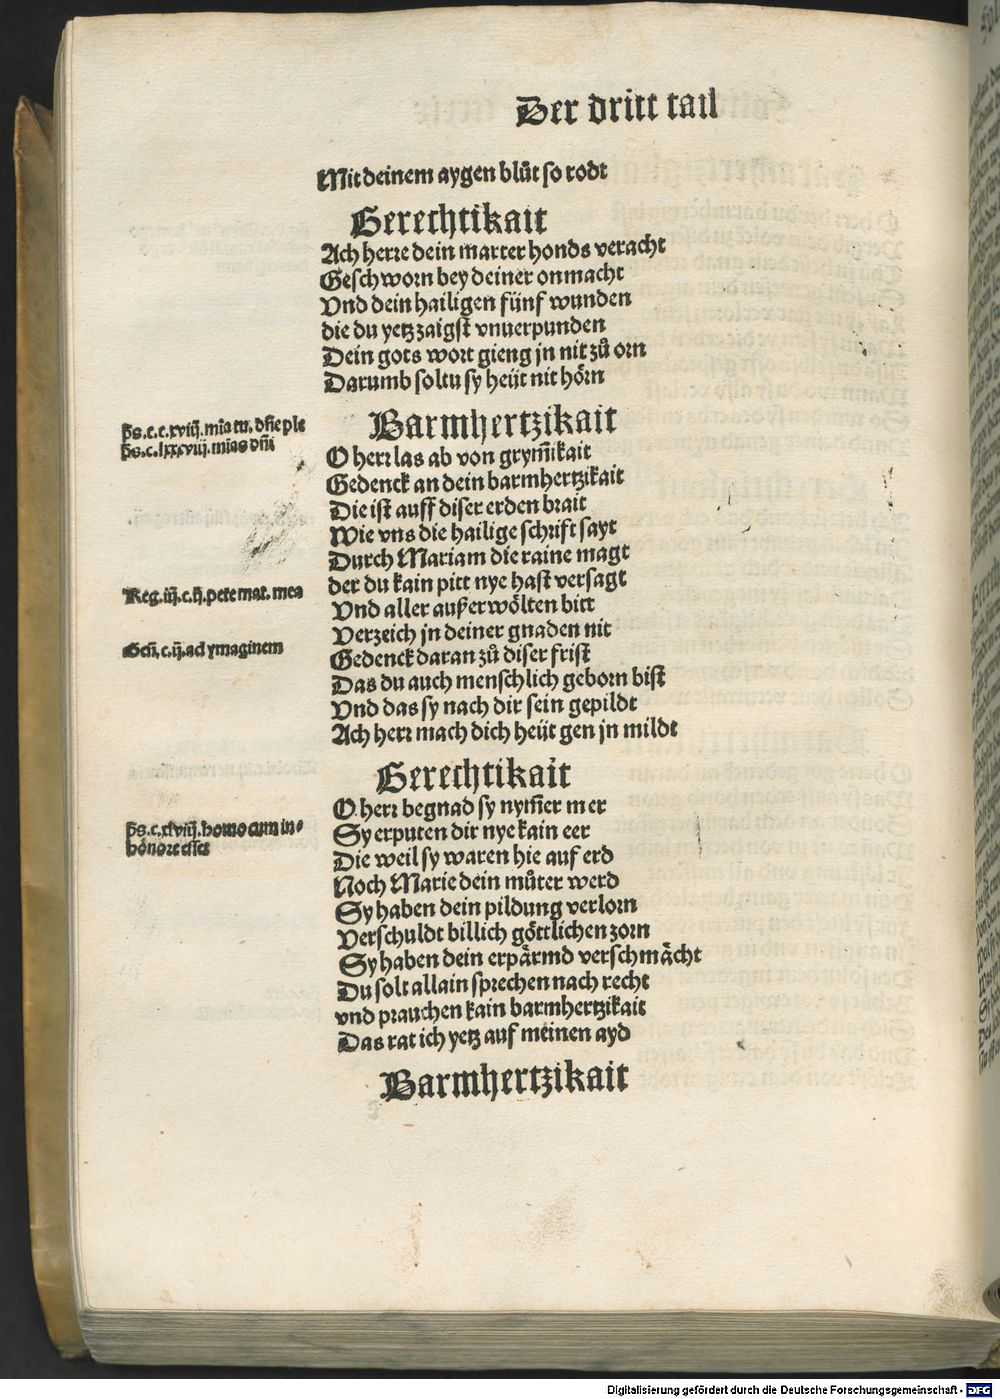 Der dritt tail
Mit deinem aygen blůt so rodt
Gerechtikait
Ach herre dein marter honds veracht
Geschworn bey deiner onmacht
Vnd dein hailigen fünf wunden
die du yetz zaigst vnuerpunden
Dein gots wort gieng jn nit zů orn
Darumb soltu sy heüt nit hörn
Barmhertzikait
p̄s. c. c.xviij. mīa tu. dn̄e ple
p̄s. c. lxxxviij. mīas dn̄i
O herr las ab von grym̄ikait
Gedenck an dein barmhertzikait
Die ist auff diser erden brait
Wie vns die hailige schrift sayt
Durch Mariam die raine magt
der du kain pitt nye hast versagt
Reg. iij. c. ij. pete mat. mea
Vnd aller außerwölten bitt
Verzeich jn deiner gnaden nit
Gen̄. c. ij. ad ymaginem
Gedenck daran zů diser frist
Das du auch menschlich geborn bist
Vnd das sy nach dir sein gepildt
Ach herr mach dich heüt gen jn mildt
Gerechtikait
O herr begnad sy nym̄er mer
p̄s. c. xlviij. homo cum in⸗
honore esset
Sy erputen dir nye kain eer
Die weil sy waren hie auf erd
Noch Marie dein můter werd
Sy haben dein pildung verlorn
Verschuldt billich göttlichen zorn
Sy haben dein erpärmd verschmächt
Du solt allain sprechen nach recht
vnd prauchen kain barmhertzikait
Das rat ich yetz auf meinen ayd
Barmhertzikait
Digitalisierung gefördert durch die Deutsche Forschungsgemeinschaft - DFG